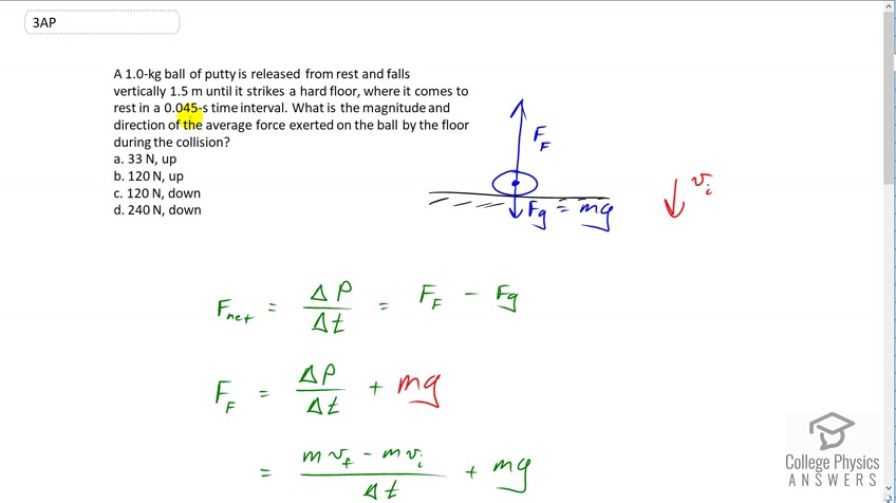 3AP
A 1.0-kg ball of putty is released from rest and falls
vertically 1.5 m until it strikes a hard floor, where it comes to
rest in a 0.045-s time interval. What is the magnitude and
direction of the average force exerted on the ball by the floor
during the collision?
a. 33 N, up
b. 120 N, up
c. 120 N, down
d. 240 N, down
F_F
F_g = mg
v_i
F_net = ΔP/Δt = F_F - F_g
F_F = ΔP/Δt + mg
= (m v_f - m v_i)/Δt + mg
College Physics
ANSWERS